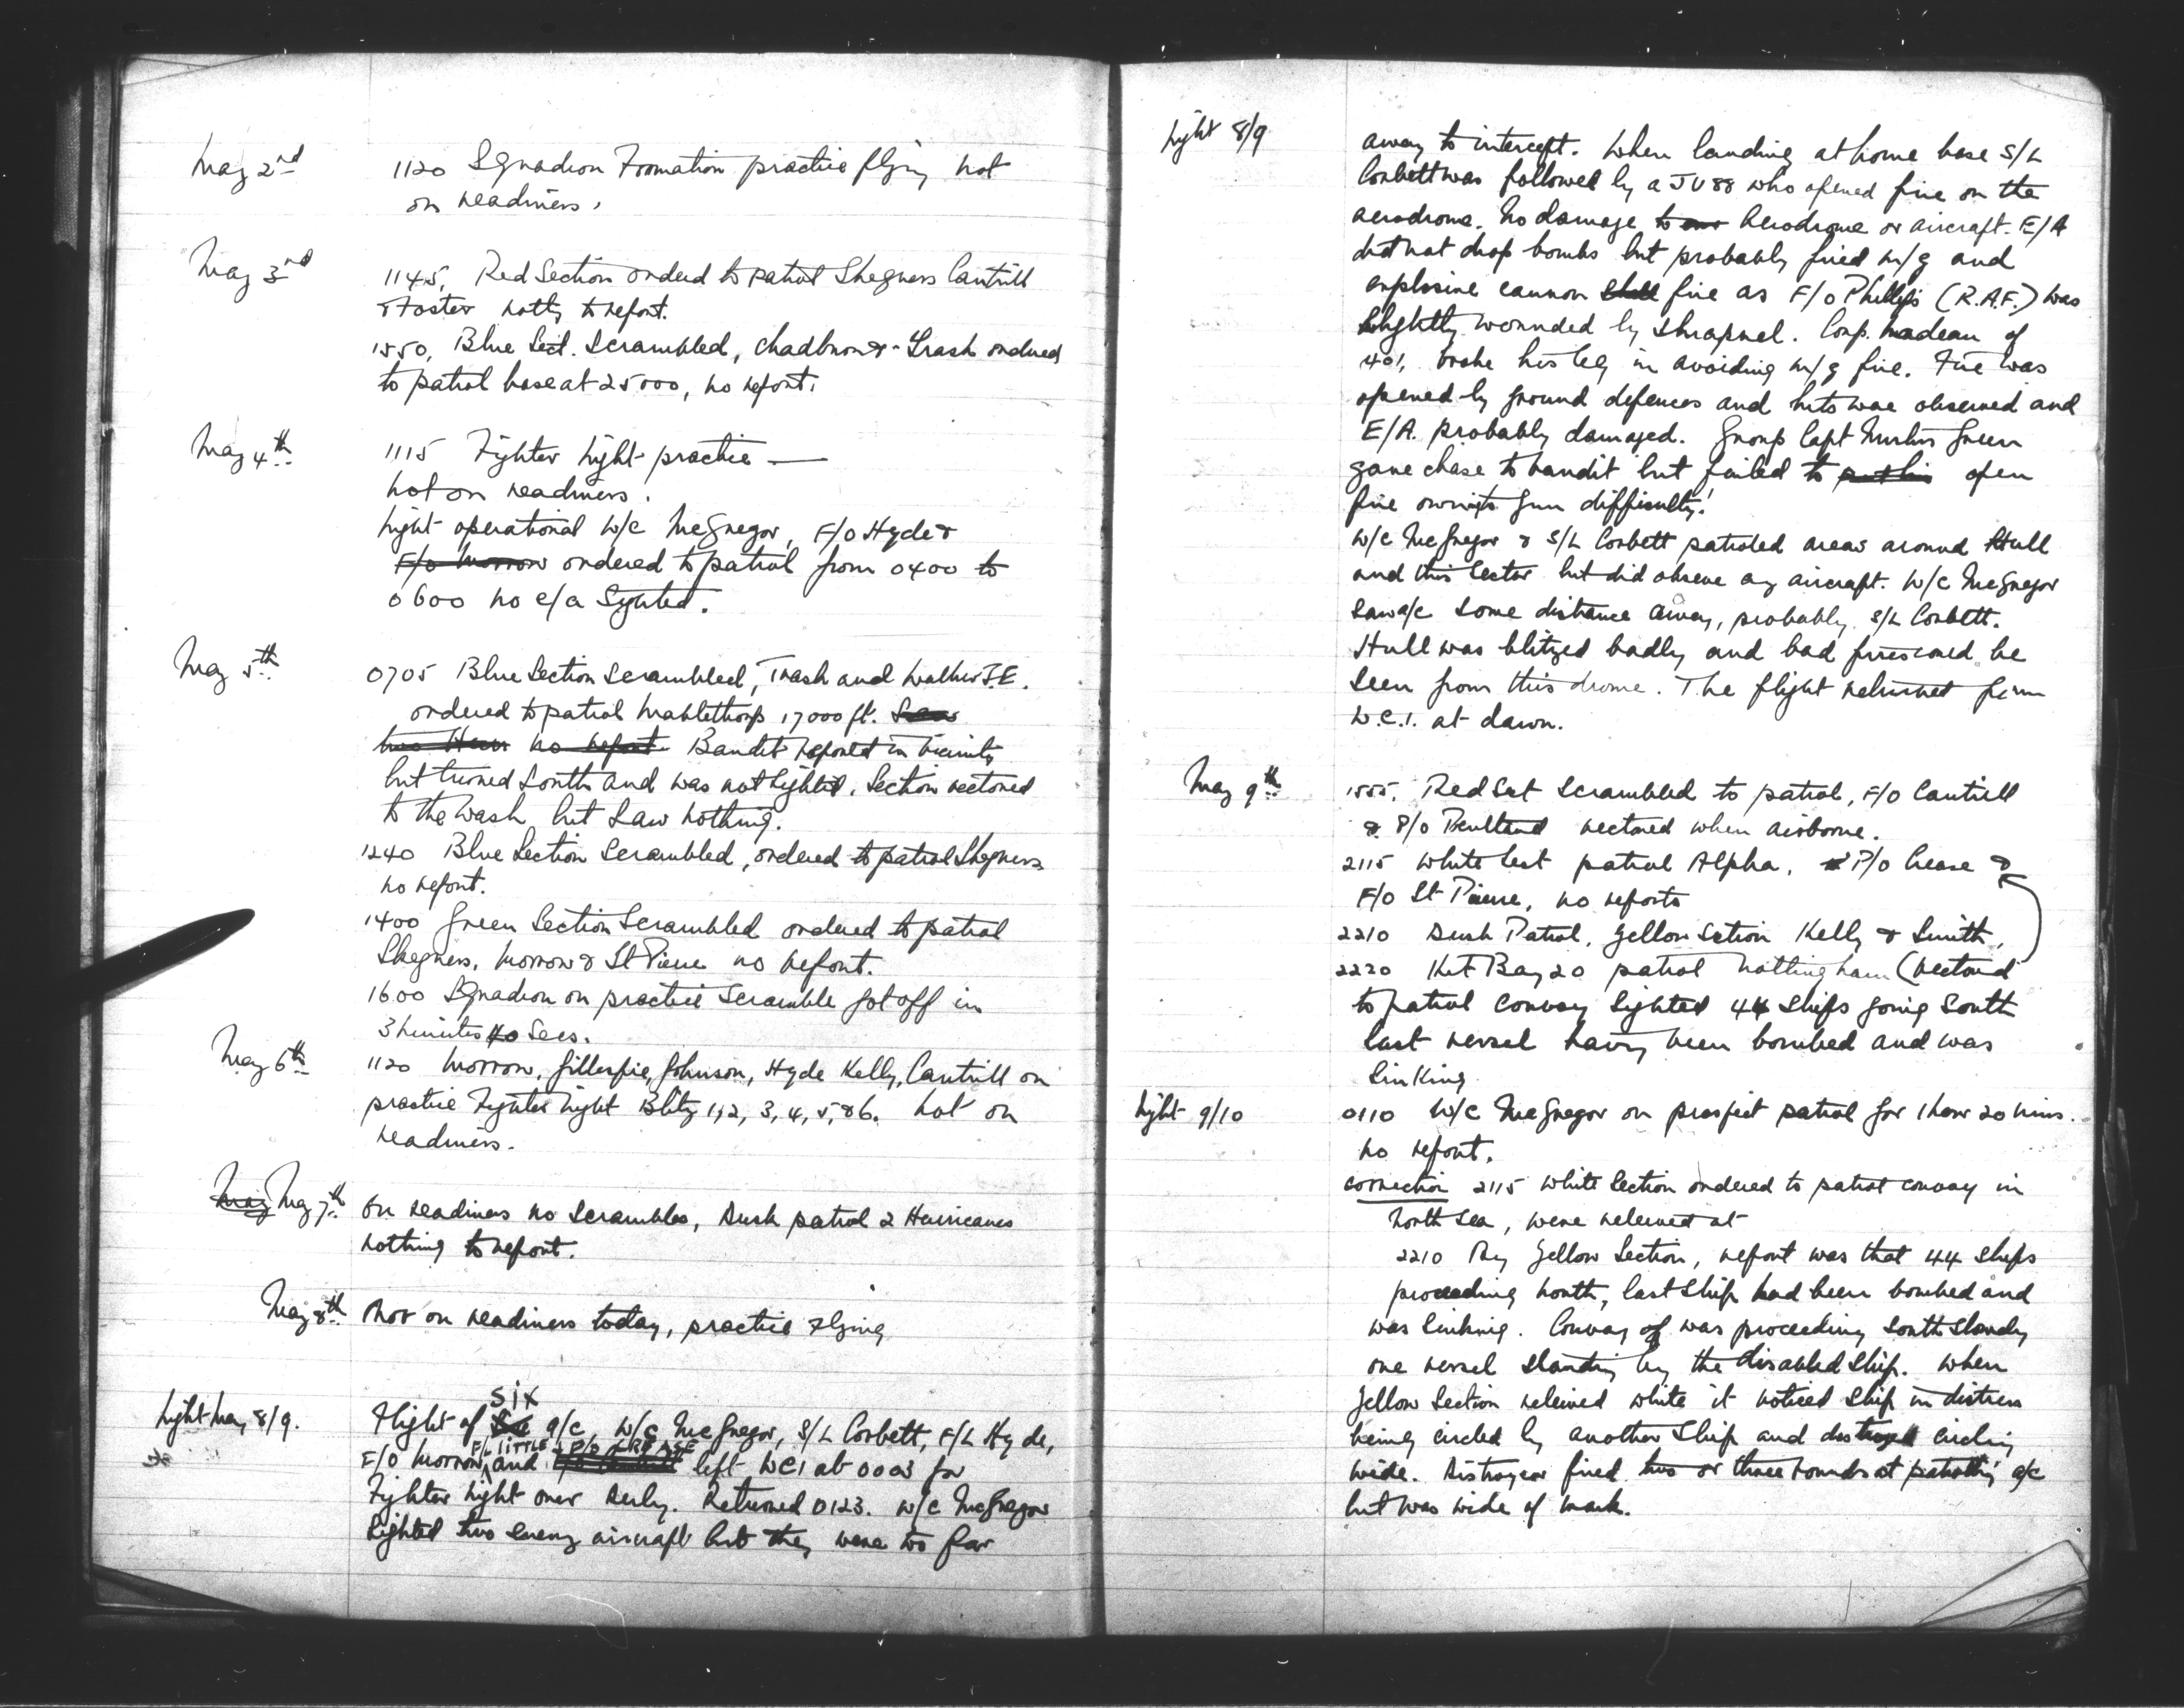 May 2nd
1120 Squadron Formation practice flying not
on readiness.
May 3rd
1145, Red Section ordered to patrol Skegness Cantrill
& Foster nothg to report.
1550, Blue Sect. Scrambled, Chadburn & Trash ordered
to patrol base at 25000, no report.
May 4th
1115 Fighter Night practice —
not on readiness.
Night operational W/C McGregor, F/O Hyde &
F/O Morrow ordered to patrol from 0400 to
0600 no e/a Sighted.
May 5th
0705 Blue Section Scrambled, Trash and Walker J.E.
ordered to patrol Mablethorp 17000 ft. Saw
two no report Bandit reported in vicinity
but turned South and was not sighted. Section vectored
to the Wash, but Saw nothing.
1240 Blue Section Scrambled, ordered to patrol Skegness
no report.
1400 Green Section Scrambled ordered to patrol
Skegness, Morrow & St Pierre no report.
1600 Squadron on practice Scramble got off in
3 minutes 40 Secs.
May 6th
1120 Morrow, Gillespie, Johnson, Hyde Kelly, Cantrill on
practice Fighter Night Blitz 1, 2, 3, 4, 5, & 6. Not on
readiness.
May May 7th
On readiness no Scrambles, Dusk patrol 2 Hurricanes
nothing to report.
May 8th
Not on readiness today, practice flying
Night May 8/9.
six
Flight of a/c W/C McGregor, S/L Corbett, F/L Hyde,
F/L LITTLE & P/O CREASE
F/O Morrow, and left WC1 at 0003 for
Fighter Night over Derby. Returned 0123. W/C McGregor
sighted two enemy aircraft but they were too far
Night 8/9
away to intercept. When landing at home base S/L
Corbett was followed by a JU 88 who opened fire on the
aerodrome. No damage to our Aerodrome or aircraft. E/A
did not drop bombs but probably fired m/g and
explosive cannon shell fire as F/O Phillips (R.A.F.) was
slightly wounded by shrapnel. Corp. Nadeau of
401, broke his leg in avoiding m/g fire. Fire was
opened by ground defences and hits were observed and
E/A. probably damaged. Group Capt Green
gave chase to bandit but failed to open
fire owing to gun difficulty!
W/C McGregor & S/L Corbett patroled areas around Hull
and this Sector but did observe any aircraft. W/C McGregor
Saw a/c some distance away, probably S/L Corbett.
Hull was blitzed badly and bad fires could be
seen from this drome. The flight returned from
W.C.1. at dawn.
May 9th
1555. Red Sect Scrambled to patrol, F/O Cantrill
& P/O vectored when airborne.
2115 White Sect patrol Alpha, P/O Crease &
F/O St Pierre, no reports
2210 Dusk Patrol, Yellow Section Kelly & Smith,
2220 Kit Bag 20 patrol Nottingham (vectored
to patrol convoy sighted 44 ships going South
last vessel having been bombed and was
Sinking
Night 9/10
0110 W/C McGregor on prospect patrol for 1 hour 20 mins.
no report.
correction 2115 White Section ordered to patrol convoy in
North Sea, were relieved at
2210 By Yellow Section, report was that 44 ships
proceeding North, last ship had been bombed and
was sinking. Convoy of was proceeding South slowly
one vessel standing by the disabled ship. When
Yellow Section relieved White it noticed ship in distress
being circled by another ship and destroyer circling
wide. Destroyer fired two or three rounds at patrolling a/c
but was wide of mark.